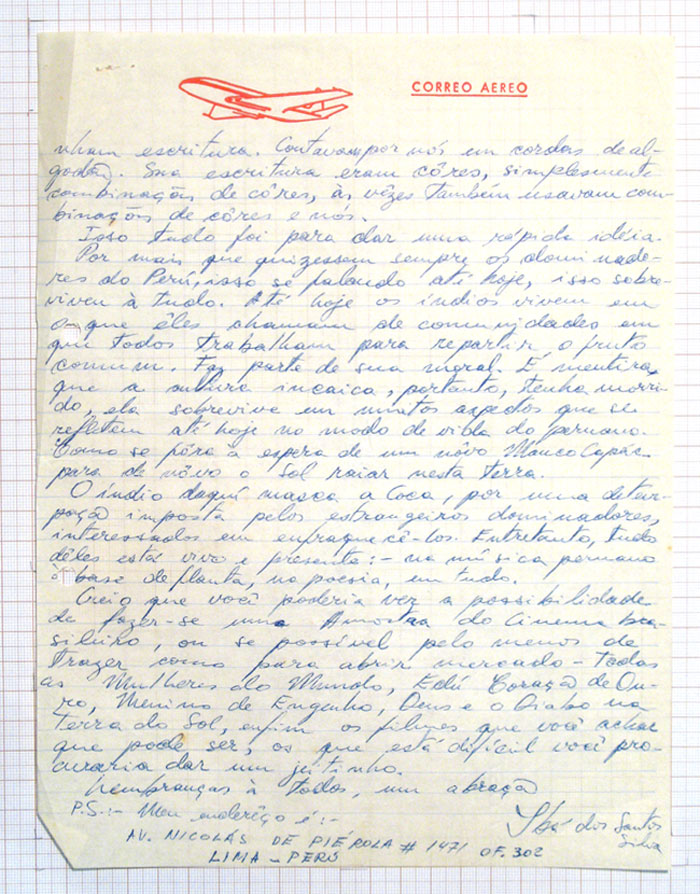 CORREO AEREO
nham escritura. Contavam por nós em cordas de al-
godão. Sua escritura eram côres, simplesmente
combinação de côres, às vêzes também usavam com-
binação de côres e nós.
Isso tudo foi para dar uma rápida idéia.
Por mais que quizessem sempre os domina-
res do Perú, isso se falando até hoje, isso sobre-
viveu à tudo. Até hoje os índios vivem em
o que êles chamam de comunidades em
que todos trabalham para repartir o fruto
comum. Faz parte de sua moral. É mentira,
que a cultura incaica, portanto, tenha morri-
do, ela sobrevive em muitos aspectos que se
refletem até hoje no modo de vida do peruano.
Como se fôra à espera de um nôvo Manco Capác
para de nôvo o Sol raiar nesta terra.
O índio daquí masca a Coca, por uma detur-
pação imposta pelos estrangeiros dominadores,
interessados em enfraquecê-los. Entretanto, tudo
dêles está vivo e presente:- na música peruana
à base de flauta, na poesia, em tudo.
Creio que você poderia ver a possibilidade
de fazer-se uma Amostra do Cinema bra-
sileiro, ou se possível pelo menos de
trazer como para abrir mercado - Todas
as Mulheres do Mundo, Edú Coração de Ou-
ro, Menino de Engenho, Deus e o Diabo na
Terra do Sol, enfim os filmes que você achar
que pode ser, os que está difícil você pro-
curaria dar um jeitinho.
Lembranças à todos, um abraço
P.S.:- Meu enderêço é:-
dos Santos
Silva
AV. NICOLÁS DE PIÉROLA # 1471 OF. 302
LIMA - PERÚ